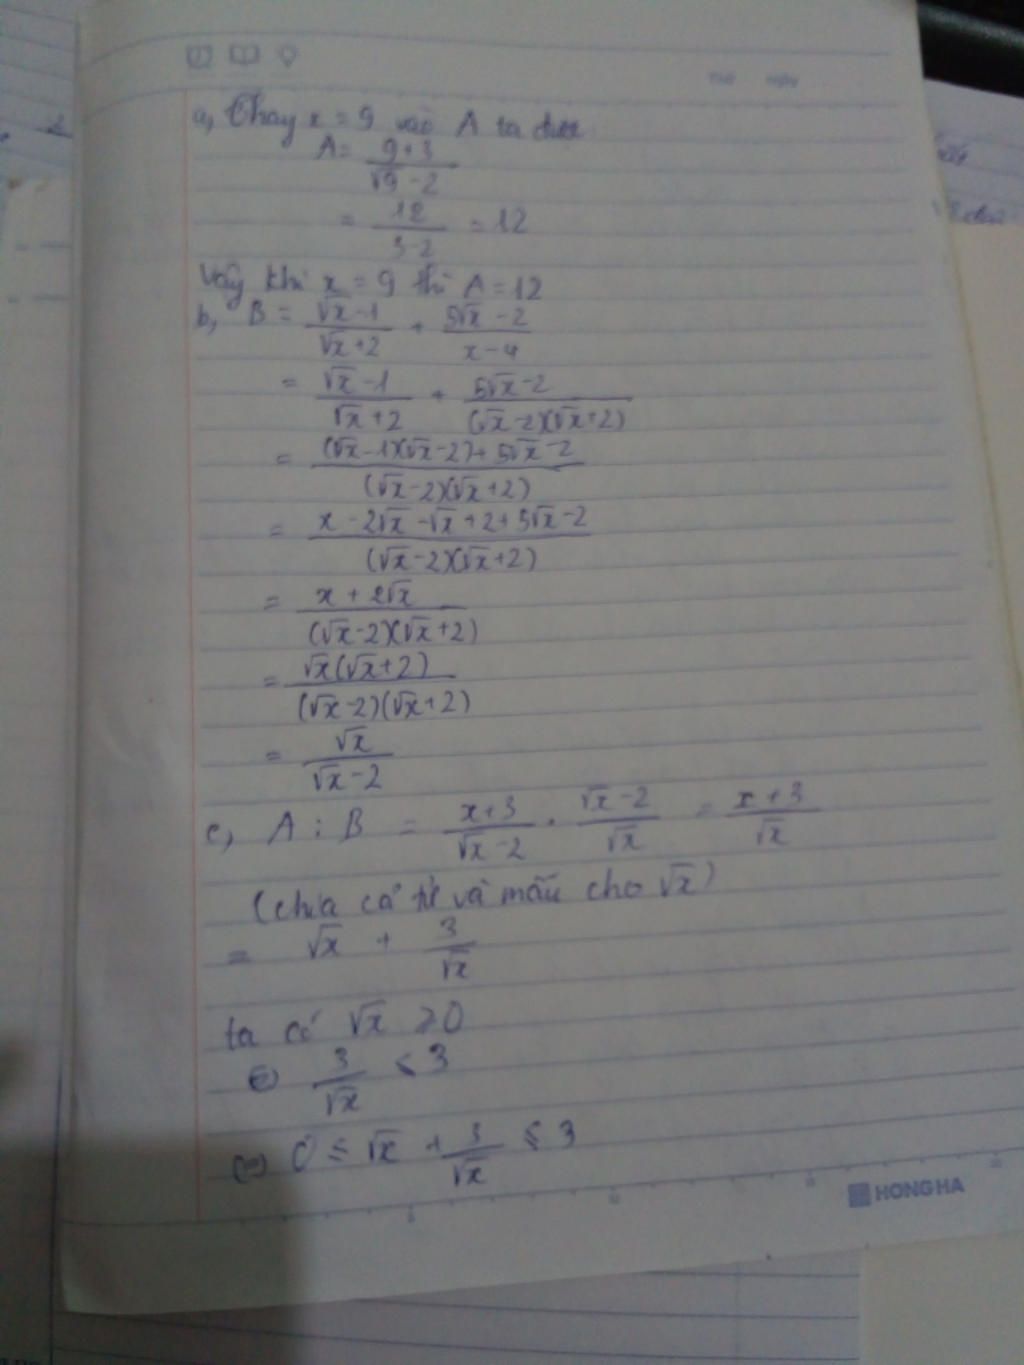 a, Thay x = 9 vào A ta được
A = \frac{9+3}{\sqrt{9}-2}
= \frac{12}{3-2} = 12
Vậy khi x = 9 thì A = 12
b, B = \frac{\sqrt{x}-1}{\sqrt{x}+2} + \frac{5\sqrt{x}-2}{x-4}
= \frac{\sqrt{x}-1}{\sqrt{x}+2} + \frac{5\sqrt{x}-2}{(\sqrt{x}-2)(\sqrt{x}+2)}
= \frac{(\sqrt{x}-1)(\sqrt{x}-2)+5\sqrt{x}-2}{(\sqrt{x}-2)(\sqrt{x}+2)}
= \frac{x-2\sqrt{x}-\sqrt{x}+2+5\sqrt{x}-2}{(\sqrt{x}-2)(\sqrt{x}+2)}
= \frac{x+2\sqrt{x}}{(\sqrt{x}-2)(\sqrt{x}+2)}
= \frac{\sqrt{x}(\sqrt{x}+2)}{(\sqrt{x}-2)(\sqrt{x}+2)}
= \frac{\sqrt{x}}{\sqrt{x}-2}
c, A : B = \frac{x+3}{\sqrt{x}-2} . \frac{\sqrt{x}-2}{\sqrt{x}} = \frac{x+3}{\sqrt{x}}
(chia cả tử và mẫu cho \sqrt{x})
= \sqrt{x} + \frac{3}{\sqrt{x}}
ta có \sqrt{x} ≥ 0
(=) \frac{3}{\sqrt{x}} ≤ 3
(=) 0 ≤ \sqrt{x} + \frac{3}{\sqrt{x}} ≤ 3
HONG HA